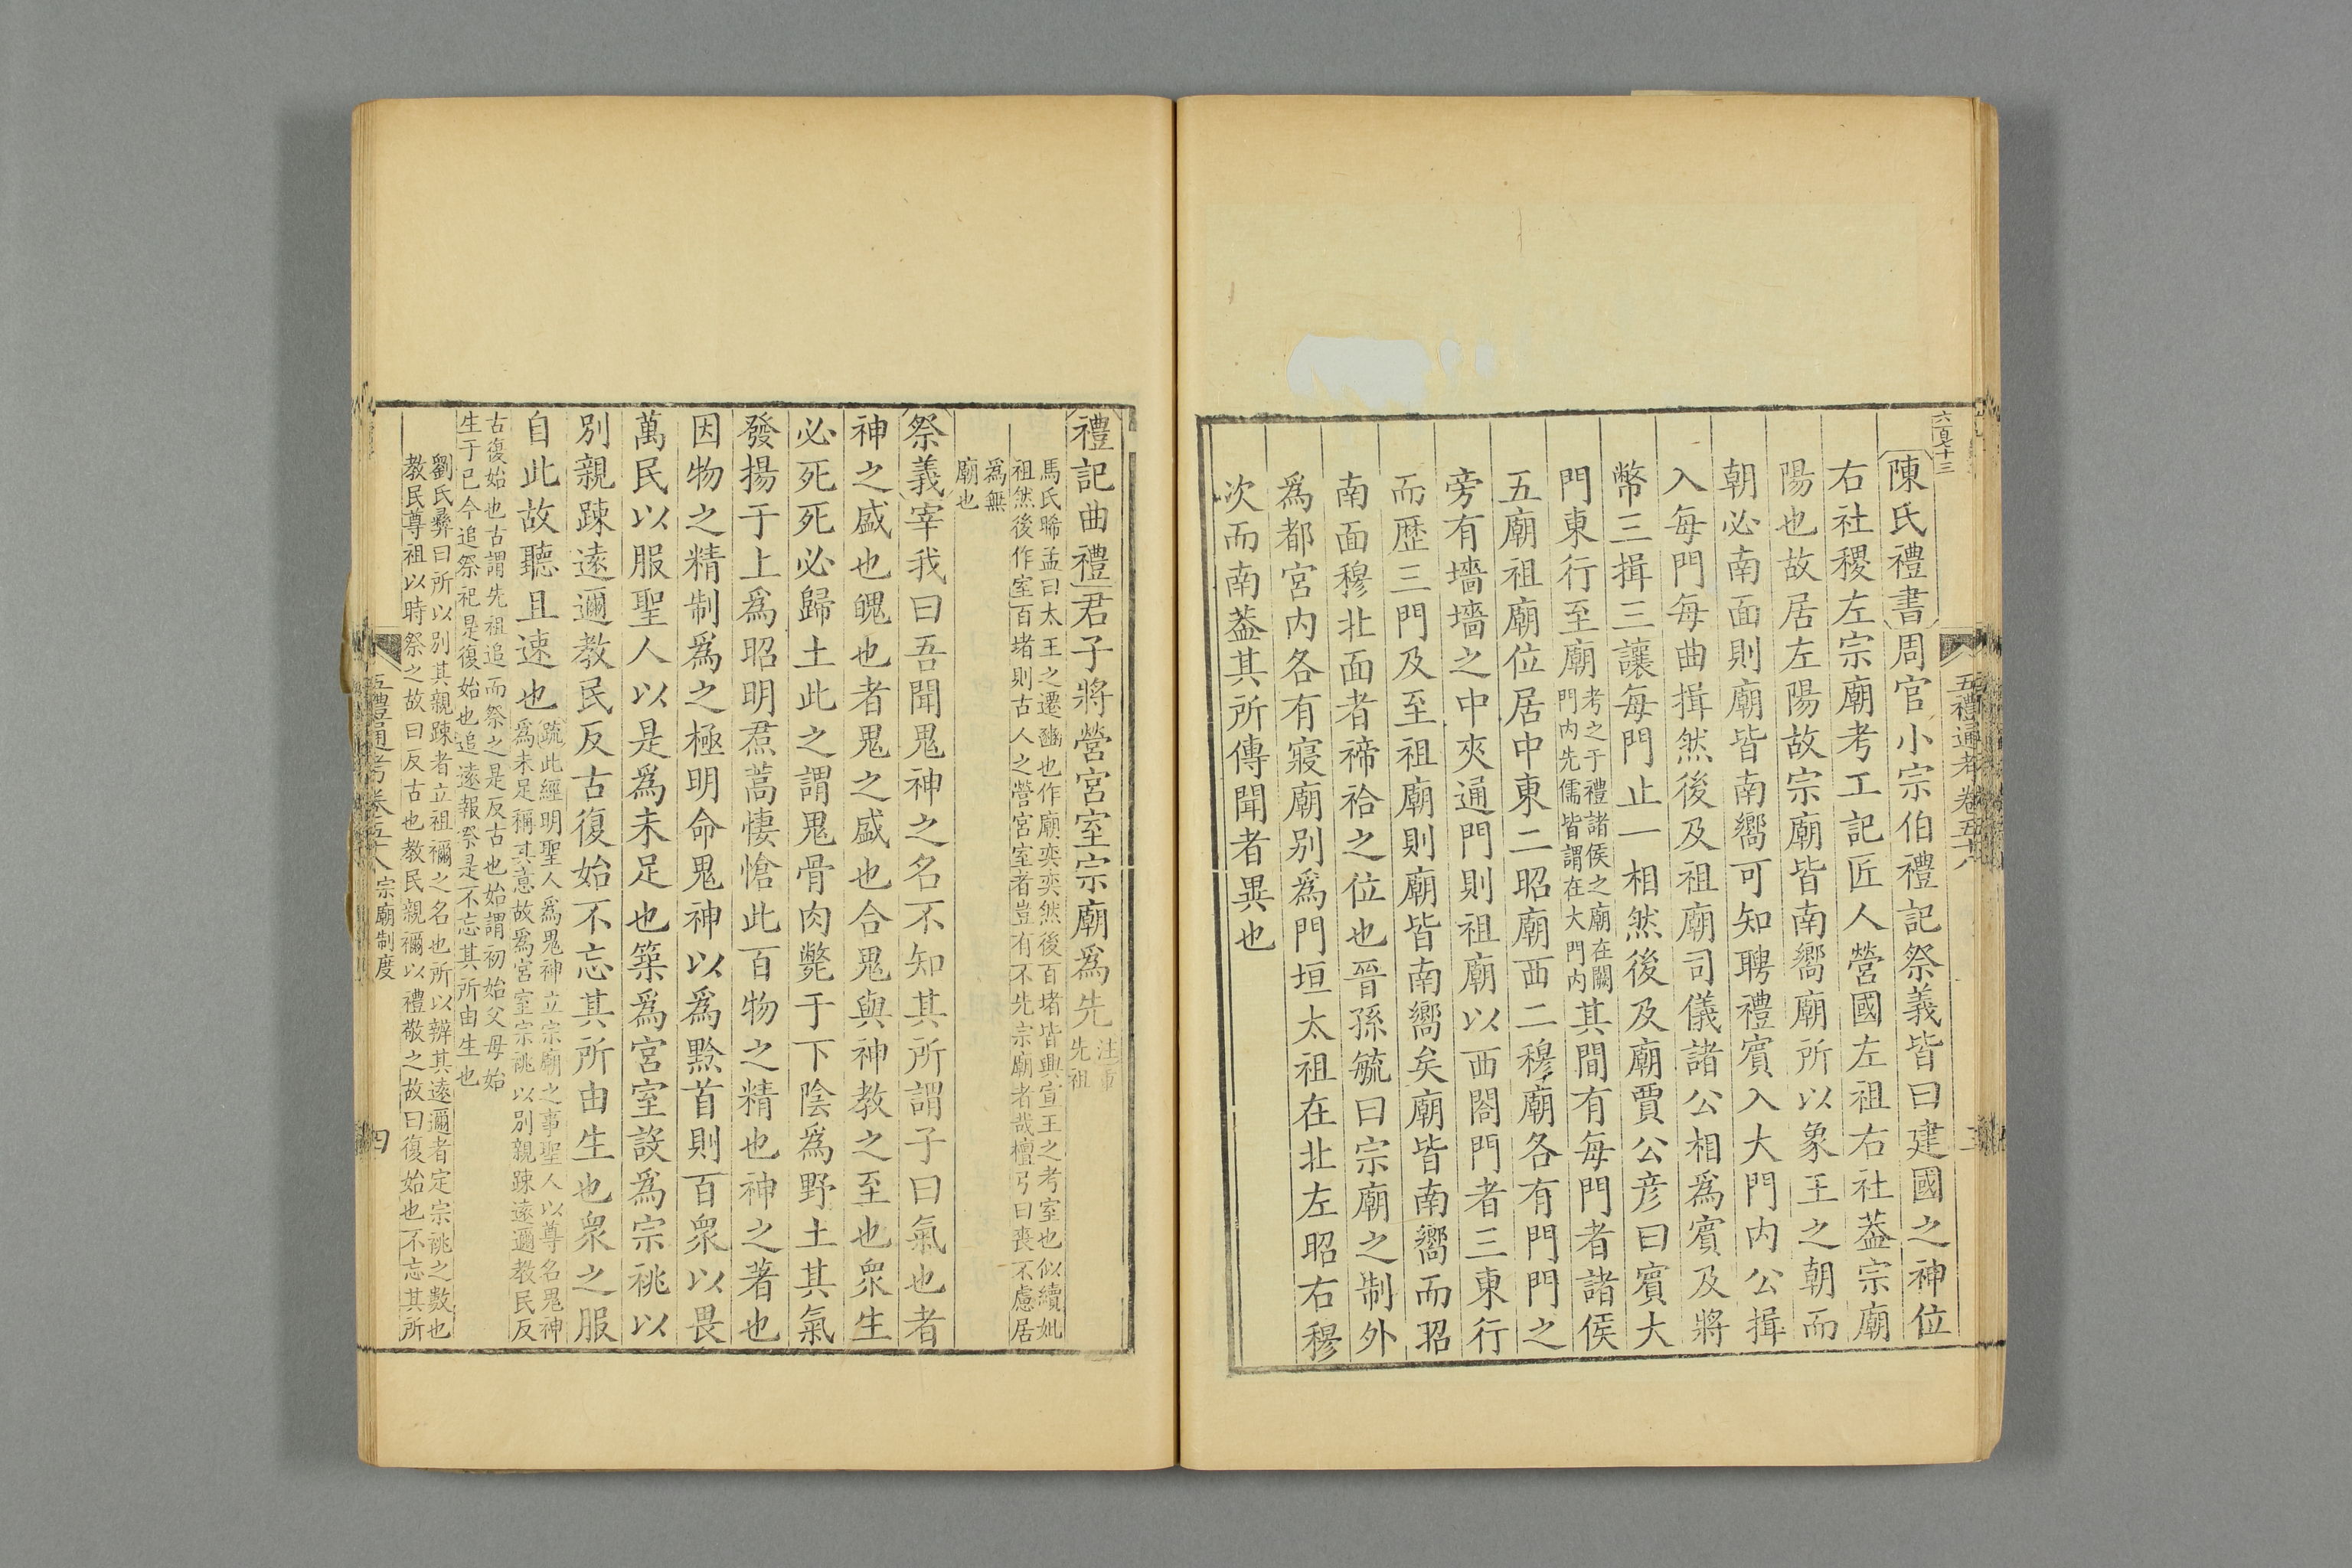 六百十三
五禮通考卷五十八
三
陳氏禮書周官小宗伯禮記祭義皆曰建國之神位
右社稷左宗廟考工記匠人營國左祖右社葢宗廟
陽也故居左陽故宗廟皆南嚮廟所以象王之朝而
朝必南面則廟皆南嚮可知聘禮賓入大門內公揖
入每門每曲揖然後及祖廟司儀諸公相爲賓及將
幣三揖三讓每門止一相然後及廟賈公彥曰賓大
門東行至廟
考之于禮諸侯之廟在闕
門內先儒皆謂在大門內
其間有每門者諸侯
五廟祖廟位居中東二昭廟西二穆廟各有門門之
旁有墻墻之中夾通門則祖廟以西閤門者三東行
而歷三門及至祖廟則廟皆南嚮矣廟皆南嚮而昭
南面穆北面者禘祫之位也晉孫毓曰宗廟之制外
爲都宮內各有寢廟别爲門垣太祖在北左昭右穆
次而南葢其所傳聞者異也
禮記曲禮君子將營宮室宗廟爲先
注重
先祖
馬氏晞孟曰太王之遷豳也作廟奕奕然後百堵皆興宣王之考室也似續妣
祖然後作室百堵則古人之營宮室者豈有不先宗廟者哉檀弓曰喪不慮居
爲無
廟也
祭義宰我曰吾聞鬼神之名不知其所謂子曰氣也者
神之盛也魄也者鬼之盛也合鬼與神教之至也衆生
必死死必歸土此之謂鬼骨肉斃于下陰爲野土其氣
發揚于上爲昭明焄蒿悽愴此百物之精也神之著也
因物之精制爲之極明命鬼神以爲黔首則百衆以畏
萬民以服聖人以是爲未足也築爲宮室設爲宗祧以
别親疎遠邇教民反古復始不忘其所由生也衆之服
自此故聽且速也
疏此經明聖人爲鬼神立宗廟之事聖人以尊名鬼神
爲未足稱其意故爲宮室宗祧以别親疎遠邇教民反
古復始也古謂先祖追而祭之是反古也始謂初始父母始
生于已今追祭祀是復始也追遠報祭是不忘其所由生也
劉氏彝曰所以别其親疎者立祖禰之名也所以辨其遠邇者定宗祧之數也
教民尊祖以時祭之故曰反古也教民親禰以禮敬之故曰復始也不忘其所
五禮通考卷五十八 宗廟制度
四